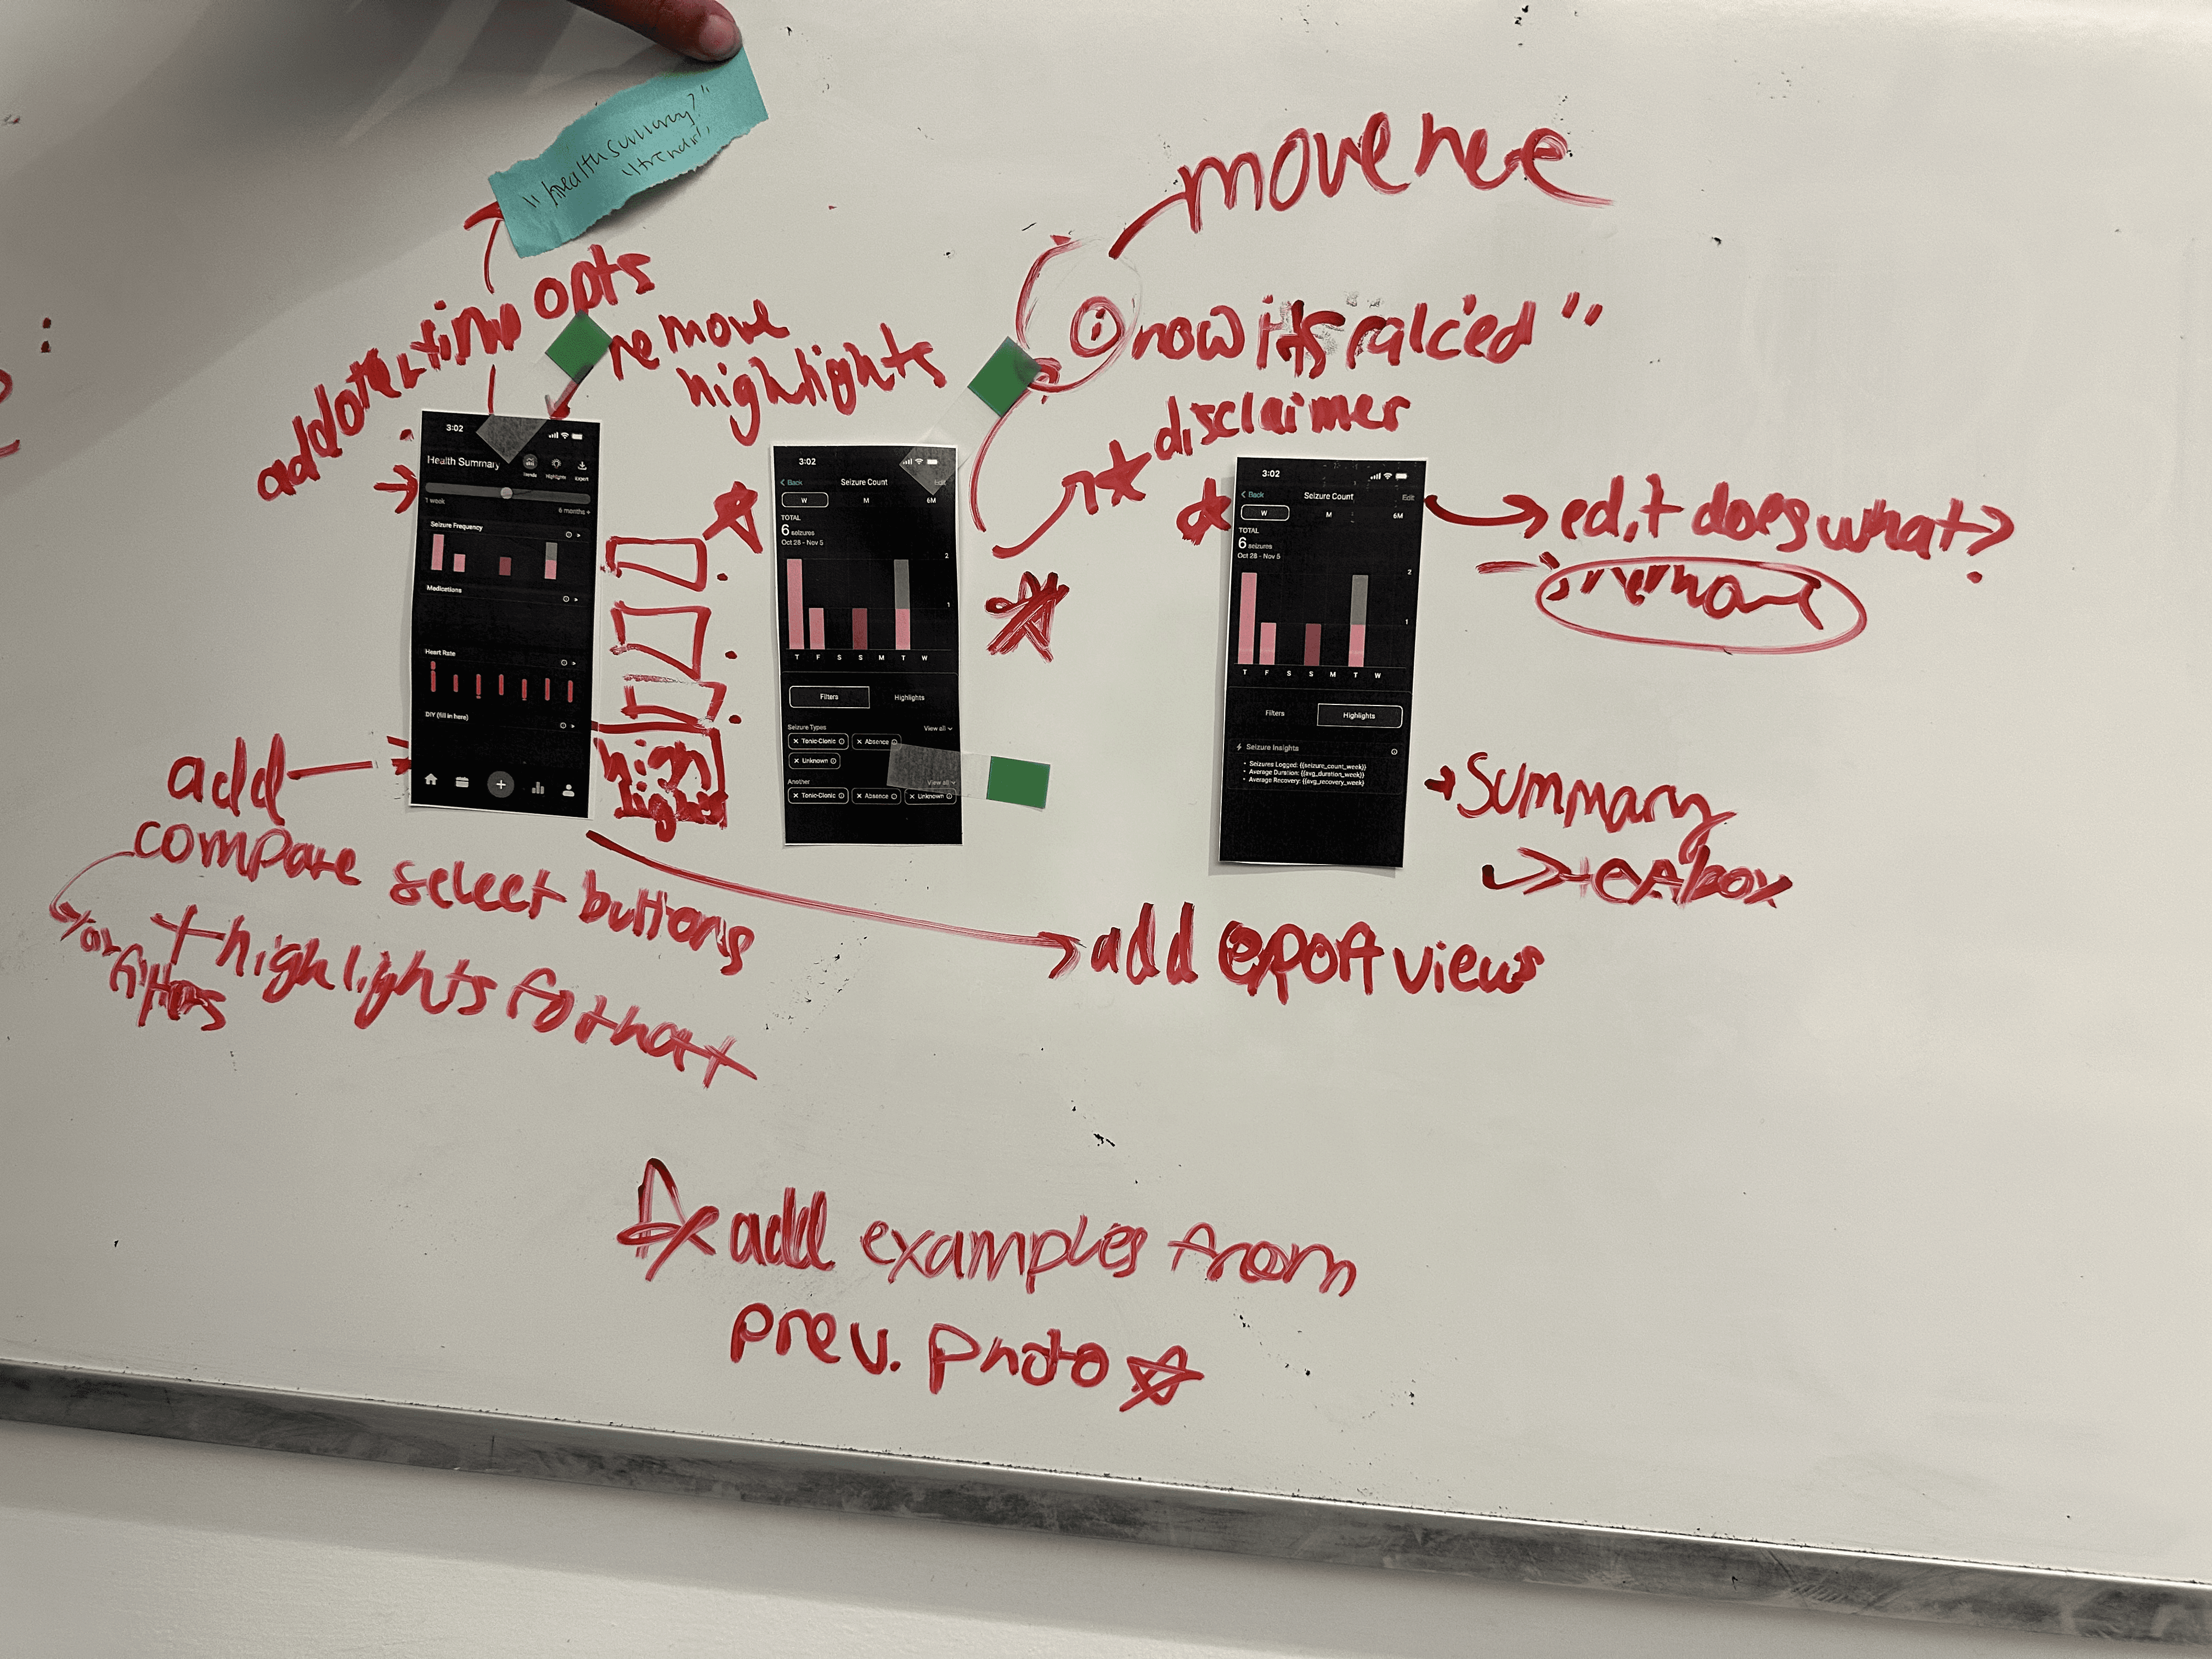 "health summary?"
"trends"
move here
add date + time opts
remove
highlights
i
how its calc'ed "
disclaimer
3:02
Health Summary
Trends
Highlights
Export
1 week
6 months +
Seizure Frequency
Medications
Heart Rate
DIY (fill in here)
high
lights
3:02
Back
Seizure Count
Edit
W
M
6M
TOTAL
6 seizures
Oct 28 - Nov 5
2
1
T F S S M T W
Filters
Highlights
Seizure Types
View all
Tonic-Clonic
Absence
Unknown
Another
View all
Tonic-Clonic
Absence
Unknown
3:02
Back
Seizure Count
Edit
W
M
6M
TOTAL
6 seizures
Oct 28 - Nov 5
2
1
T F S S M T W
Filters
Highlights
Seizure Insights
• Seizures Logged: {{seizure_count_week}}
• Average Duration: {{avg_duration_week}}
• Average Recovery: {{avg_recovery_week}}
edit does what?
remove
summary
textbox
add
compare select buttons
+ highlights for that
or
filters
add export views
add examples from
prev. photo